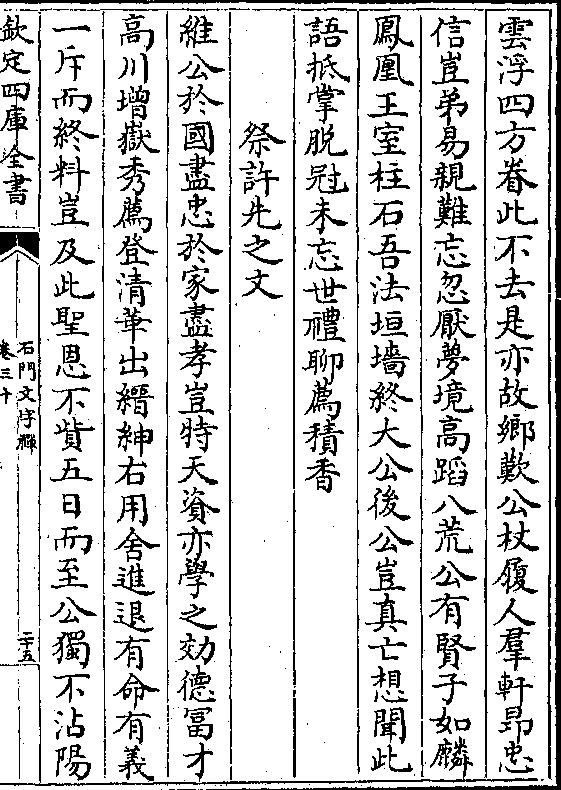 雲浮四方眷此不去是亦故鄉歎公杖履人羣軒昂忠
信豈弟易親難忘忽厭夢境高蹈八荒公有賢子如麟
鳳凰王室柱石吾法垣墻終大公後公豈真亡想聞此
語抵掌脱冠未忘世禮聊薦積香
祭許先之文
維公於國盡忠於家盡孝豈特天資亦學之効德冨才
高川增嶽秀薦登清華出縉紳右用舍進退有命有義
一斥而終料豈及此聖恩不貲五日而至公獨不沾陽
欽定四庫全書
石門文字禪
卷三十
二十五